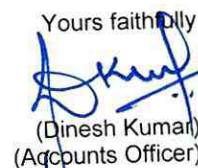 Yours faithfully
(Dinesh Kumar)
(Accounts Officer)